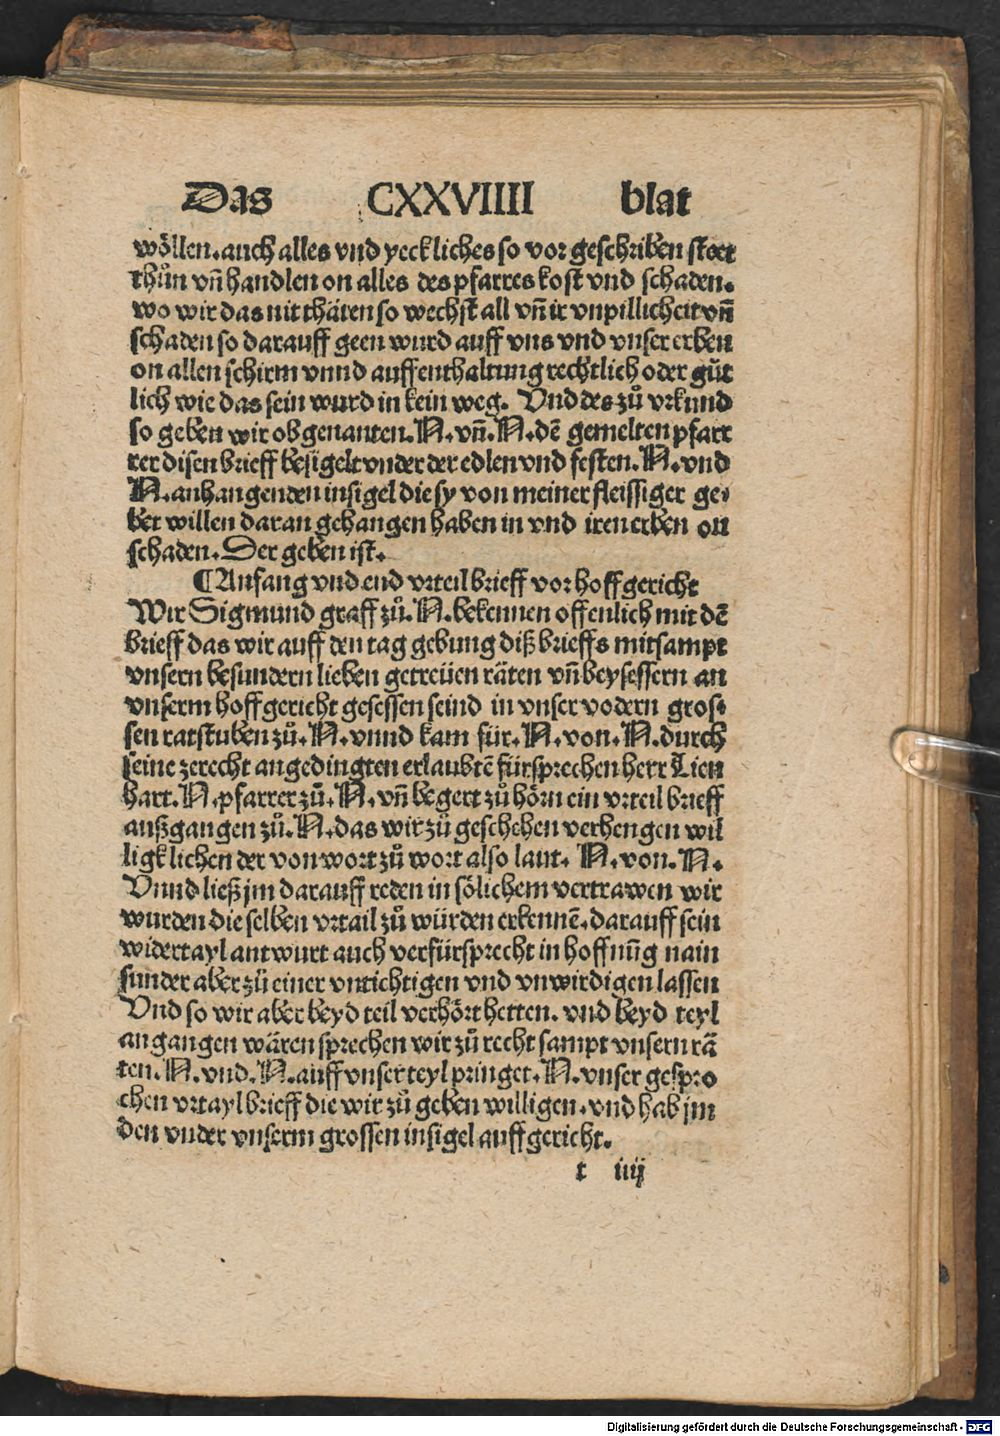 Das CXXVIIII blat
wöllen. auch alles vnd yeckliches so vor geschriben steet
thůn vn̄ handlen on alles des pfarres kost vnd schaden.
wo wir das nit thäten so wechst all vn̄ ir vnpillicheit vn̄
schaden so darauff geen wurd auff vns vnd vnser erben
on allen schirm vnnd auffenthaltung rechtlich oder gůt
lich wie das sein wurd in kein weg. Vnd des zů vrkund
so geben wir obgenanten. N. vn̄. N. dē gemelten pfarr
rer disen brieff besigelt vnder der edlen vnd festen. N. vnd
N. anhangenden insigel die sy von meiner fleissiger ge⸗
bet willen daran gehangen haben in vnd iren erben on
schaden. Der geben ist.
¶ Anfang vnd end vrteil brieff vor hoffgericht
Wir Sigmund graff zů. N. bekennen offenlich mit dē
brieff das wir auff den tag gebung diß brieffs mitsampt
vnsern besundern lieben getreüen räten vn̄ beysessern an
vnserm hoffgericht gesessen seind in vnser vodern gros⸗
sen ratstuben zů. N. vnnd kam für. N. von. N. durch
seine zerecht angedingten erlaubtē fürsprechen herr Lien
hart. N. pfarrer zů. N. vn̄ begert zů hörn ein vrteil brieff
außgangen zů. N. das wir zů geschehen verhengen wil
ligklichen der von wort zů wort also laut. N. von. N.
Vnnd ließ jm darauff reden in sölichem vertrawen wir
wurden die selben vrtail zů würden erkennē. darauff sein
widertayl antwurt auch verfürsprecht in hoffnūg nain
sunder aber zů einer vnrichtigen vnd vnwirdigen lassen
Vnd so wir aber beyd teil verhört hetten. vnd beyd teyl
angangen wären sprechen wir zů recht sampt vnsern rä
ten. N. vnd. N. auff vnser teyl pringet. N. vnser gespro
chen vrtayl brieff die wir zů geben willigen. vnd hab jm
den vnder vnserm grossen insigel auffgericht.
t iiij
Digitalisierung gefördert durch die Deutsche Forschungsgemeinschaft - DFG